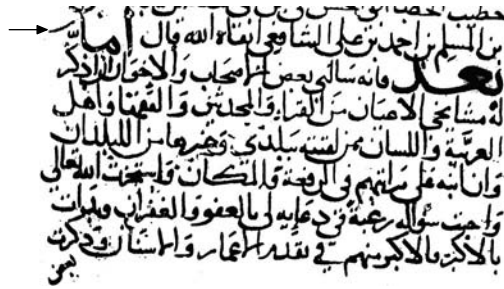 بن المسلم بن احمد بن على الشافعى ابقاه الله قال أما
بعد فانه سالنى بعض الاصحاب والاخوان ان اذكر
له مشايخى الاعيان من القراء والمحدثين والفقهاء واهل
العربية واللسان ممن لقيته ببلدى وغيرها من البلدان
وان انبه على مراتبهم فى الرفعة والمكان واستخرت الله تعالى
واجبت سؤاله رغبة فى دعايه لى بالعفو والغفران وبدات
بالاكبر فالاكبر منهم فى الاعمار والاسنان وذكرت